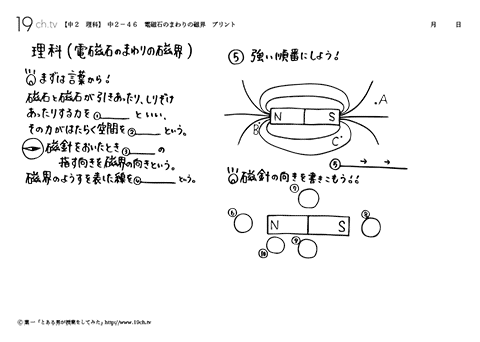 19ch.tv 【中2 理科】 中2-46 電磁石のまわりの磁界 プリント 月 日
理科(電磁石のまわりの磁界)
まずは言葉から!
磁石と磁石が引きあったり、しりぞけ
あったりする力を①といい、
その力がはたらく空間を②という。
磁針をおいたとき③の
指す向きを磁界の向きという。
磁界のようすを表した線を④という。
⑤ 強い順番にしよう!
A
B
N S
C
⑤ → →
磁針の向きを書きこもう!!
⑦
⑥
N S
⑧
⑩ ⑨
© 葉一「とある男が授業をしてみた」http://www.19ch.tv